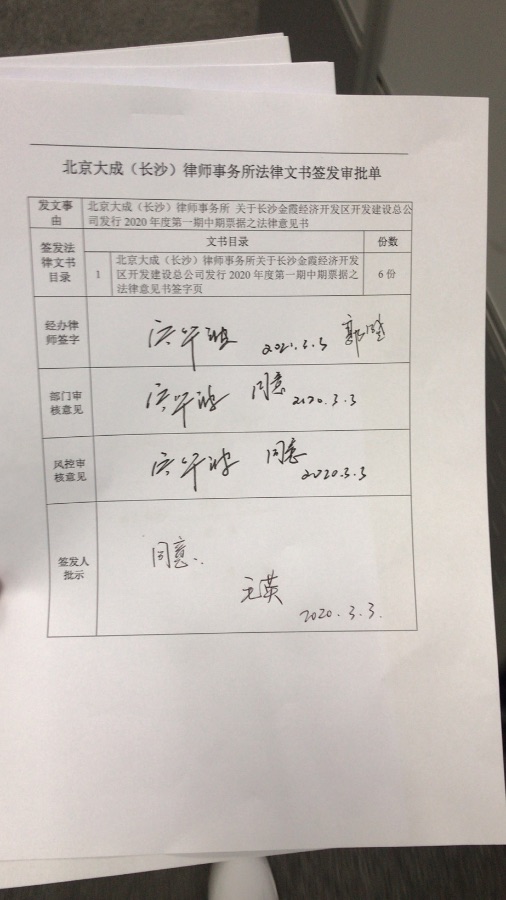 北京大成（长沙）律师事务所法律文书签发审批单
发文事由
北京大成（长沙）律师事务所 关于长沙金霞经济开发区开发建设总公
司发行 2020 年度第一期中期票据之法律意见书
签发法
律文书
目录
文书目录
份数
1
北京大成（长沙）律师事务所关于长沙金霞经济开发
区开发建设总公司发行 2020 年度第一期中期票据之
法律意见书签字页
6 份
经办律
师签字
部门审
核意见
同意
2020.3.3
风控审
核意见
同意
2020.3.3
签发人
批示
同意
2020.3.3.